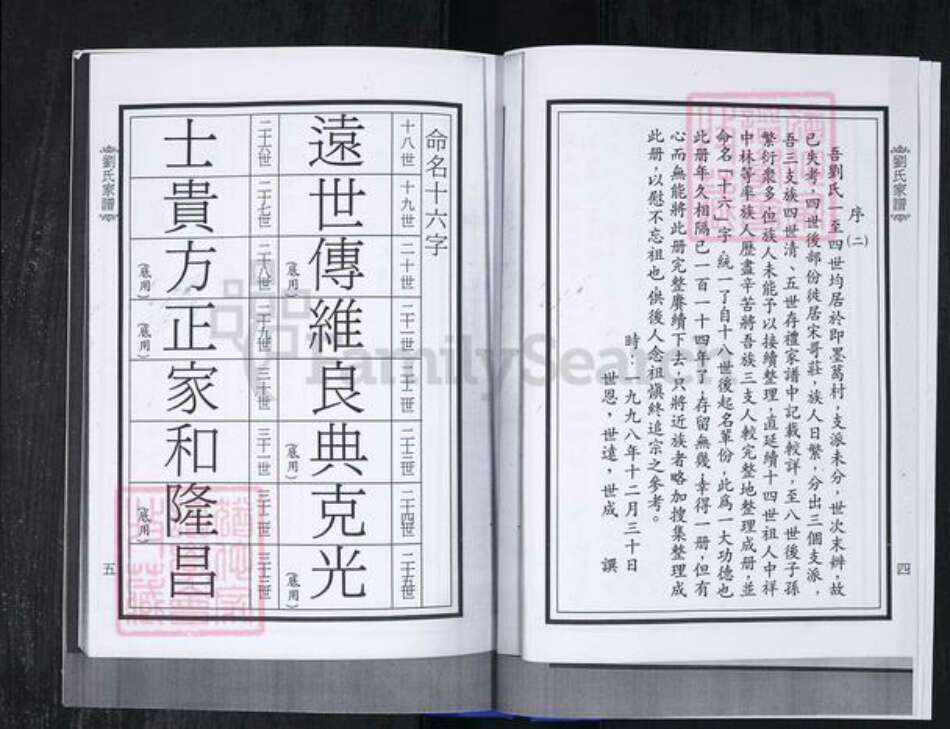 劉氏家譜
四
序(二)
吾劉氏一至四世均居於即墨葛村，支派未分，世次未辨，故
已失考，四世後部份徙居宋哥莊，族人日繁，分出三個支派，
吾三支族四世清、五世存禮家譜中記載較詳，至八世後子孫
繁衍衆多但族人未能予以接續整理，直延續十四世祖人中祥
中林等率族人歷盡辛苦將吾族三支人較完整地整理成册，並
命名「十六」字，統一了自十八世後起名輩份，此爲一大功德也
此册年久相隔已一百一十四年了，存留無幾，幸得一册，但有
心而無能將此册完整賡續下去，只將近族者略加搜集整理成
此册，以慰不忘祖也，供後人念祖慎終追宗之參考。
時：一九九八年十二月三十日
世恩，世遠，世成 譔
命名十六字
十八世 十九世 二十世 二十一世 二十二世 二十三世 二十四世 二十五世
遠 世 傳 維 良 典 克 光
(底用) (底用) (底用)
二十六世 二十七世 二十八世 二十九世 三十世 三十一世 三十二世 三十三世
士 貴 方 正 家 和 隆 昌
(底用) (底用) (底用)
劉氏家譜
五
FamilySearch